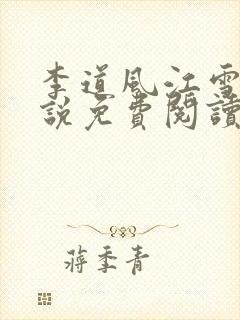 李道風江雪
說免費閱讀
蔣季青